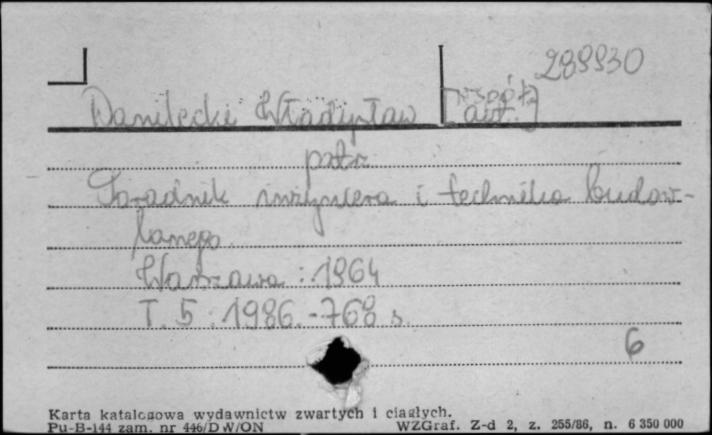 289930
Danilecki Władysław [współaut.]
patrz
Poradnik inżyniera i technika budow-
lanego.
Warszawa : 1964
T. 5 : 1986. - 768 s.
6
Karta katalogowa wydawnictw zwartych i ciągłych.
Pu-B-144 zam. nr 446/DW/ON WZGraf. Z-d 2, z. 255/86, n. 6 350 000